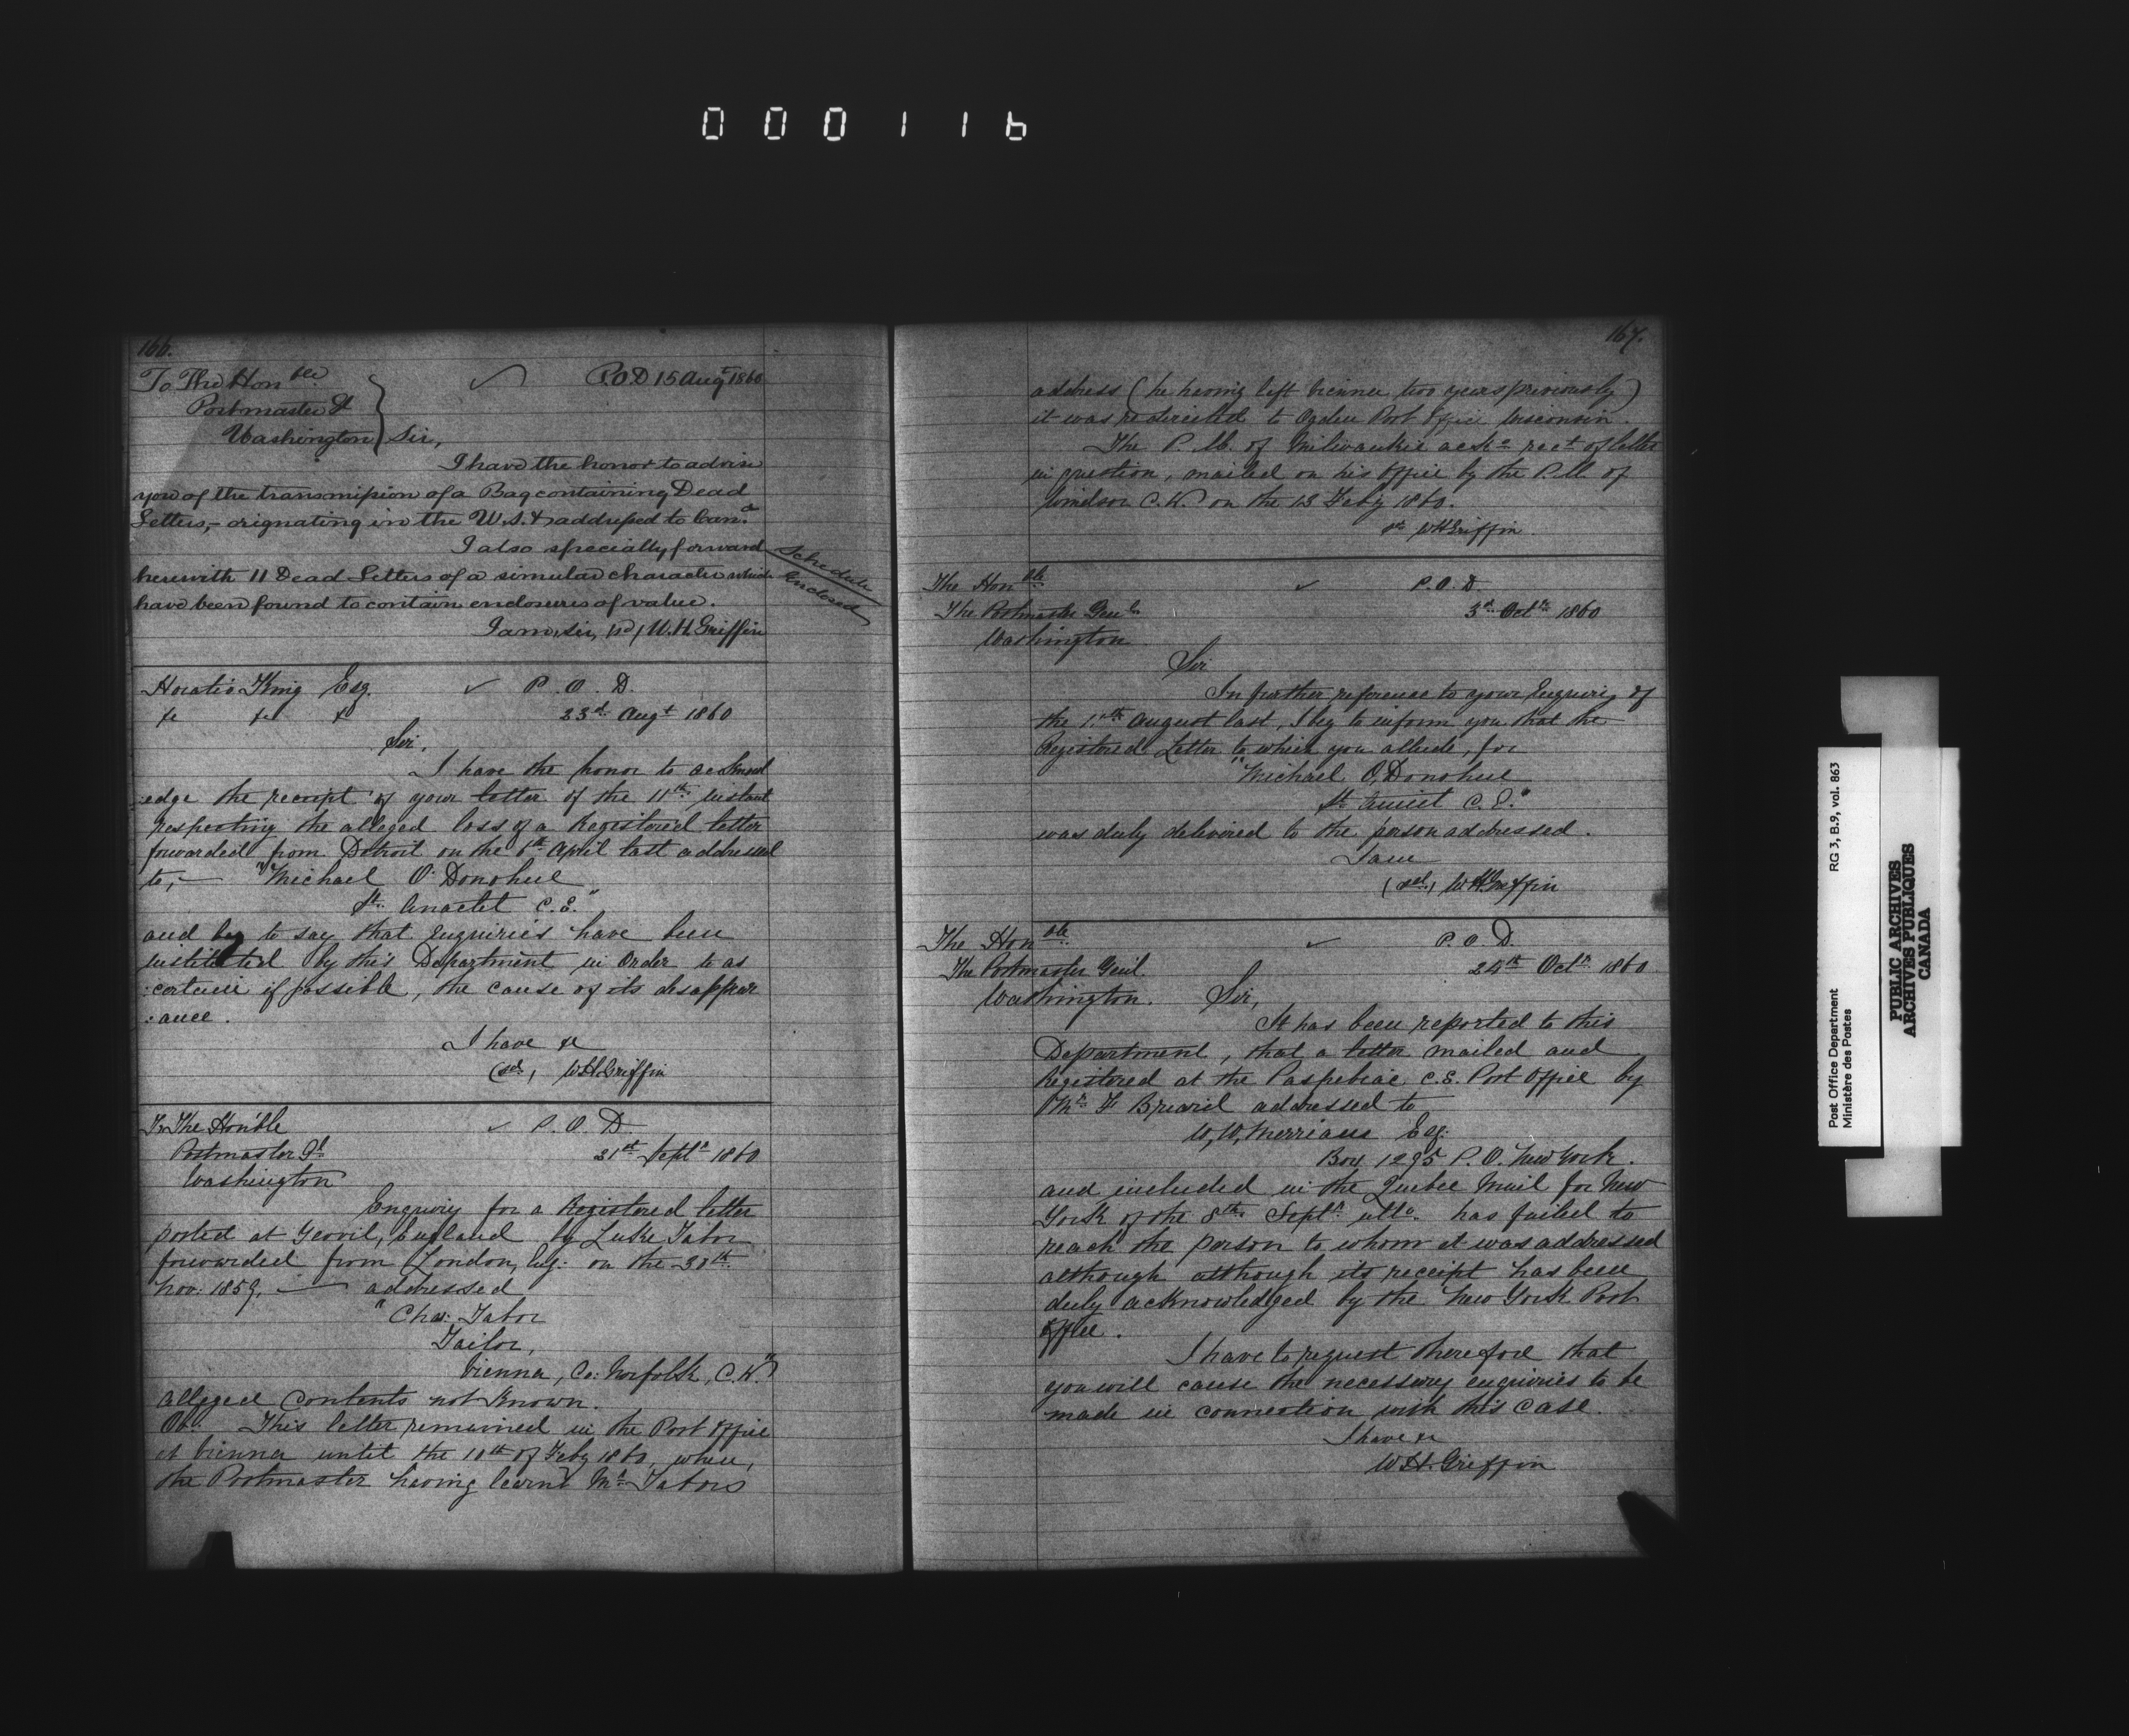 000116
166.
To The Honble
Postmaster Gl
Washington
P.O.D 15 Augt 1860
Sir,
I have the honor to advise
you of the transmission of a Bag containing Dead
Letters,- orignating in the U.S. & addressed to Cana.
I also specially forward
herewith 11 Dead Letters of a similar character which
have been found to contain enclosures of value.
Schedule
Enclosed
I am, Sir, (sd) W.H. Griffin
Horatio King Esq. P. O. D.
&c &c &c 23d Augt 1860
Sir,
I have the honor to acknowl
:edge the receipt of your letter of the 11th instant
respecting the alleged loss of a Registered letter
forwarded from Detroit on the 6th April last addressed
to,- "Michael O'Donohue
St. Anaclet C.E."
and beg to say that Enquiries have been
instituted by this Department in order to as
:certain if possible, the cause of its disappear
:ance.
I have &c
(sd.) W.H. Griffin
To The Hon'ble P. O. D.
Postmaster Gl 21st Septr 1860
Washington
Enquiry for a Registered letter
posted at Yeovil, England by Luke Tabor
forwarded from London, Eng: on the 30th
Nov: 1859, — addressed
"Chas: Tabor
Tailor,
Vienna, Co: Norfolk, C.W."
Alleged Contents not Known.
Ob. This letter remained in the Post Office
at Vienna until the 10th of Feby 1860, when,
the Postmaster having learnt Mr Tabors
167.
address (he having left Vienna two years previously)
it was redirected to Ogden Post Office Wisconsin.
The P. M. of Milwaukie ackd rect of letter
in question, mailed on his Office by the P.M. of
Windsor C.W. on the 13 Feby 1860.
sd W H Griffin
The Honble P.O.D
The Postmaster Genl 3d Octr 1860
Washington
Sir
In further reference to your Enquiry of
the 11th August last, I beg to inform you that the
Registered Letter to which you allude, for
"Michael O'Donohue
St. C.E."
was duly delivered to the person addressed.
I am
(sd.) W H Griffin
The Honble P. O. D.
The Postmaster Genl 24th Octr 1860
Washington. Sir,
It has been reported to this
Department, that a letter mailed and
Registered at the Paspebiac C.E. Post Office by
Mr F addressed to
W, W, Merriam Esq:
Box 1295 P.O. New York.
and included in the Quebec Mail for New
York of the 8th Septr ulto has failed to
reach the person to whom it was addressed
although although its receipt has been
duly acknowledged by the New York Post
Office.
I have to request therefore that
you will cause the necessary enquiries to be
made in connection with this case.
I have &c
W.H. Griffin
Post Office Department RG 3, B.9, vol. 863
Ministère des Postes
PUBLIC ARCHIVES
ARCHIVES PUBLIQUES
CANADA